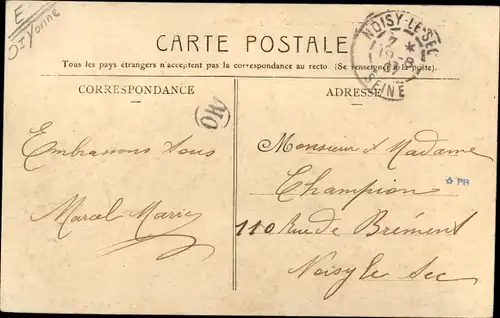 E
Dt Yonne
CARTE POSTALE
Tous les pays étrangers n'acceptent pas la correspondance au recto. (Se renseigner à la poste).
CORRESPONDANCE
ADRESSE
NOISY-LE-SEC
SEINE
OR
Embrassons tous
Marcel Marie
Monsieur & Madame
Champion
110 Rue de Brément
Noisy le Sec
PR